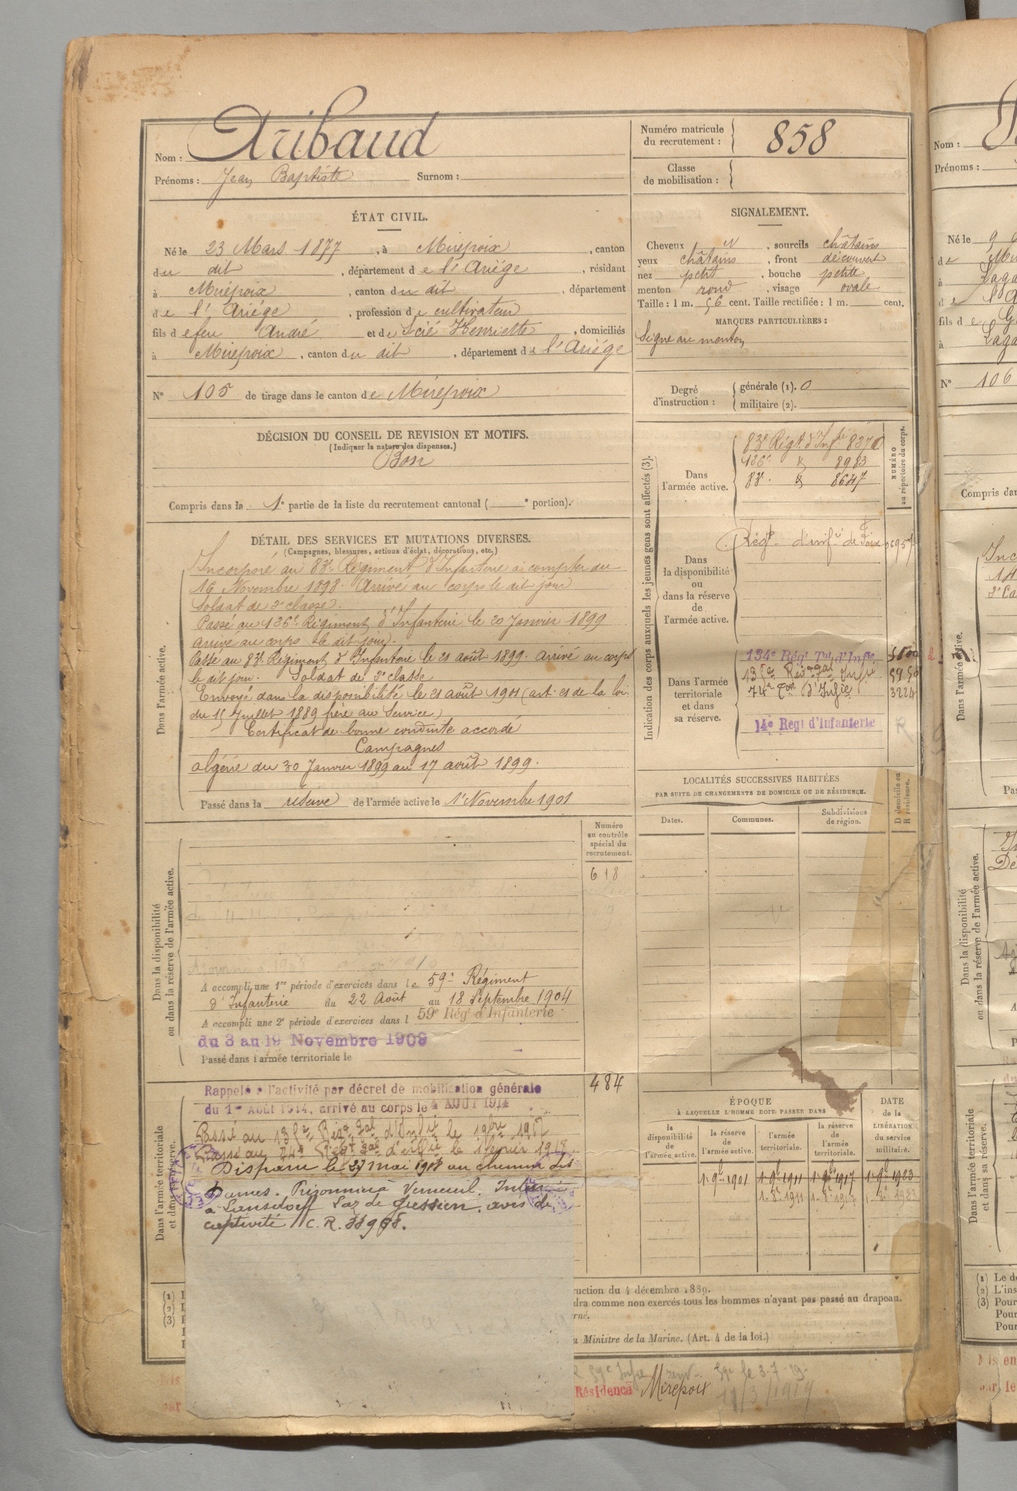 Nom : Aribaud
Prénoms : Jean Baptiste Surnom :
Numéro matricule du recrutement : 858
Classe de mobilisation :
ÉTAT CIVIL.
Né le 23 Mars 1877, à Mirepoix, canton
du dit, département de l'Ariège, résidant
à Mirepoix, canton du dit, département
de l'Ariège, profession de cultivateur
fils de feu André et de Scié Henriette, domiciliés
à Mirepoix, canton du dit, département de l'Ariège
N° 105 de tirage dans le canton de Mirepoix
SIGNALEMENT.
Cheveux N, sourcils châtains
yeux châtains, front découvert
nez petit, bouche petite
menton rond, visage ovale
Taille : 1 m. 56 cent. Taille rectifiée : 1 m. cent.
MARQUES PARTICULIÈRES :
Signe au menton
Degré d'instruction : générale (1). 0
militaire (2).
DÉCISION DU CONSEIL DE REVISION ET MOTIFS.
(Indiquer la nature des dispenses.)
Bon
Compris dans la 1e partie de la liste du recrutement cantonal ( e portion).
DÉTAIL DES SERVICES ET MUTATIONS DIVERSES.
(Campagnes, blessures, actions d'éclat, décorations, etc.)
Dans l'armée active.
Incorporé au 83e Régiment d'Infanterie à compter du
16 Novembre 1898. Arrivé au corps le dit jour
Soldat de 2e classe.
Passé au 136e Régiment d'Infanterie le 20 Janvier 1899
arrivé au corps le dit jour.
Passé au 83e Régiment d'Infanterie le 21 août 1899. Arrivé au corps
le dit jour. Soldat de 2e classe.
Envoyé dans la disponibilité le 21 août 1901 (art. 21 de la loi
du 15 Juillet 1889 frère au service)
Certificat de bonne conduite accordé
Campagnes
Algérie du 30 Janvier 1899 au 17 août 1899.
Passé dans la réserve de l'armée active le 1er Novembre 1901
Indication des corps auxquels les jeunes gens sont affectés (3).
NUMÉRO au répertoire du corps.
Dans l'armée active.
83e Régt d'Infie
136e d° 8983
83e d° 8647
Dans la disponibilité ou dans la réserve de l'armée active.
Régt d'infie de Foix
Dans l'armée territoriale et dans sa réserve.
134e Rég Tal d'Infie
74e Ter d'Infie 3224
14e Régt d'Infanterie R
LOCALITÉS SUCCESSIVES HABITÉES
PAR SUITE DE CHANGEMENTS DE DOMICILE OU DE RÉSIDENCE.
Dates. Communes. Subdivisions de région. D domicile ou R résidence.
Dans la disponibilité ou dans la réserve de l'armée active.
Numéro au contrôle spécial du recrutement.
618
A accompli une 1re période d'exercices dans le 59e Régiment
d'Infanterie du 22 Août au 18 Septembre 1904
A accompli une 2e période d'exercices dans l 59e Rég d'Infanterie
du 3 au 19 Novembre 1909
Passé dans l'armée territoriale le
484
Dans l'armée territoriale et dans sa réserve.
Rappelé à l'activité par décret de mobilisation générale
du 1er Août 1914, arrivé au corps le 4 AOUT 1914
Passé au 74e d'Infie le 1 février 1918
Disparu le 27 mai 1918 au chemin des
Dames. Prisonnier à Verneuil. Interné
à avis de
captivité C.R.
ÉPOQUE
À LAQUELLE L'HOMME DOIT PASSER DANS
la disponibilité de l'armée active. la réserve de l'armée active. l'armée territoriale. la réserve de l'armée territoriale.
DATE de la LIBÉRATION du service militaire.
1-9bre 1901 1-9bre 1911 1-9bre 1917 1-9bre 1923
(1)
(2)
(3)
ruction du 4 décembre 1889.
dra comme non exercés tous les hommes n'ayant pas passé au drapeau.
u Ministre de la Marine. (Art. 4 de la loi.)
Résidence Mirepoix